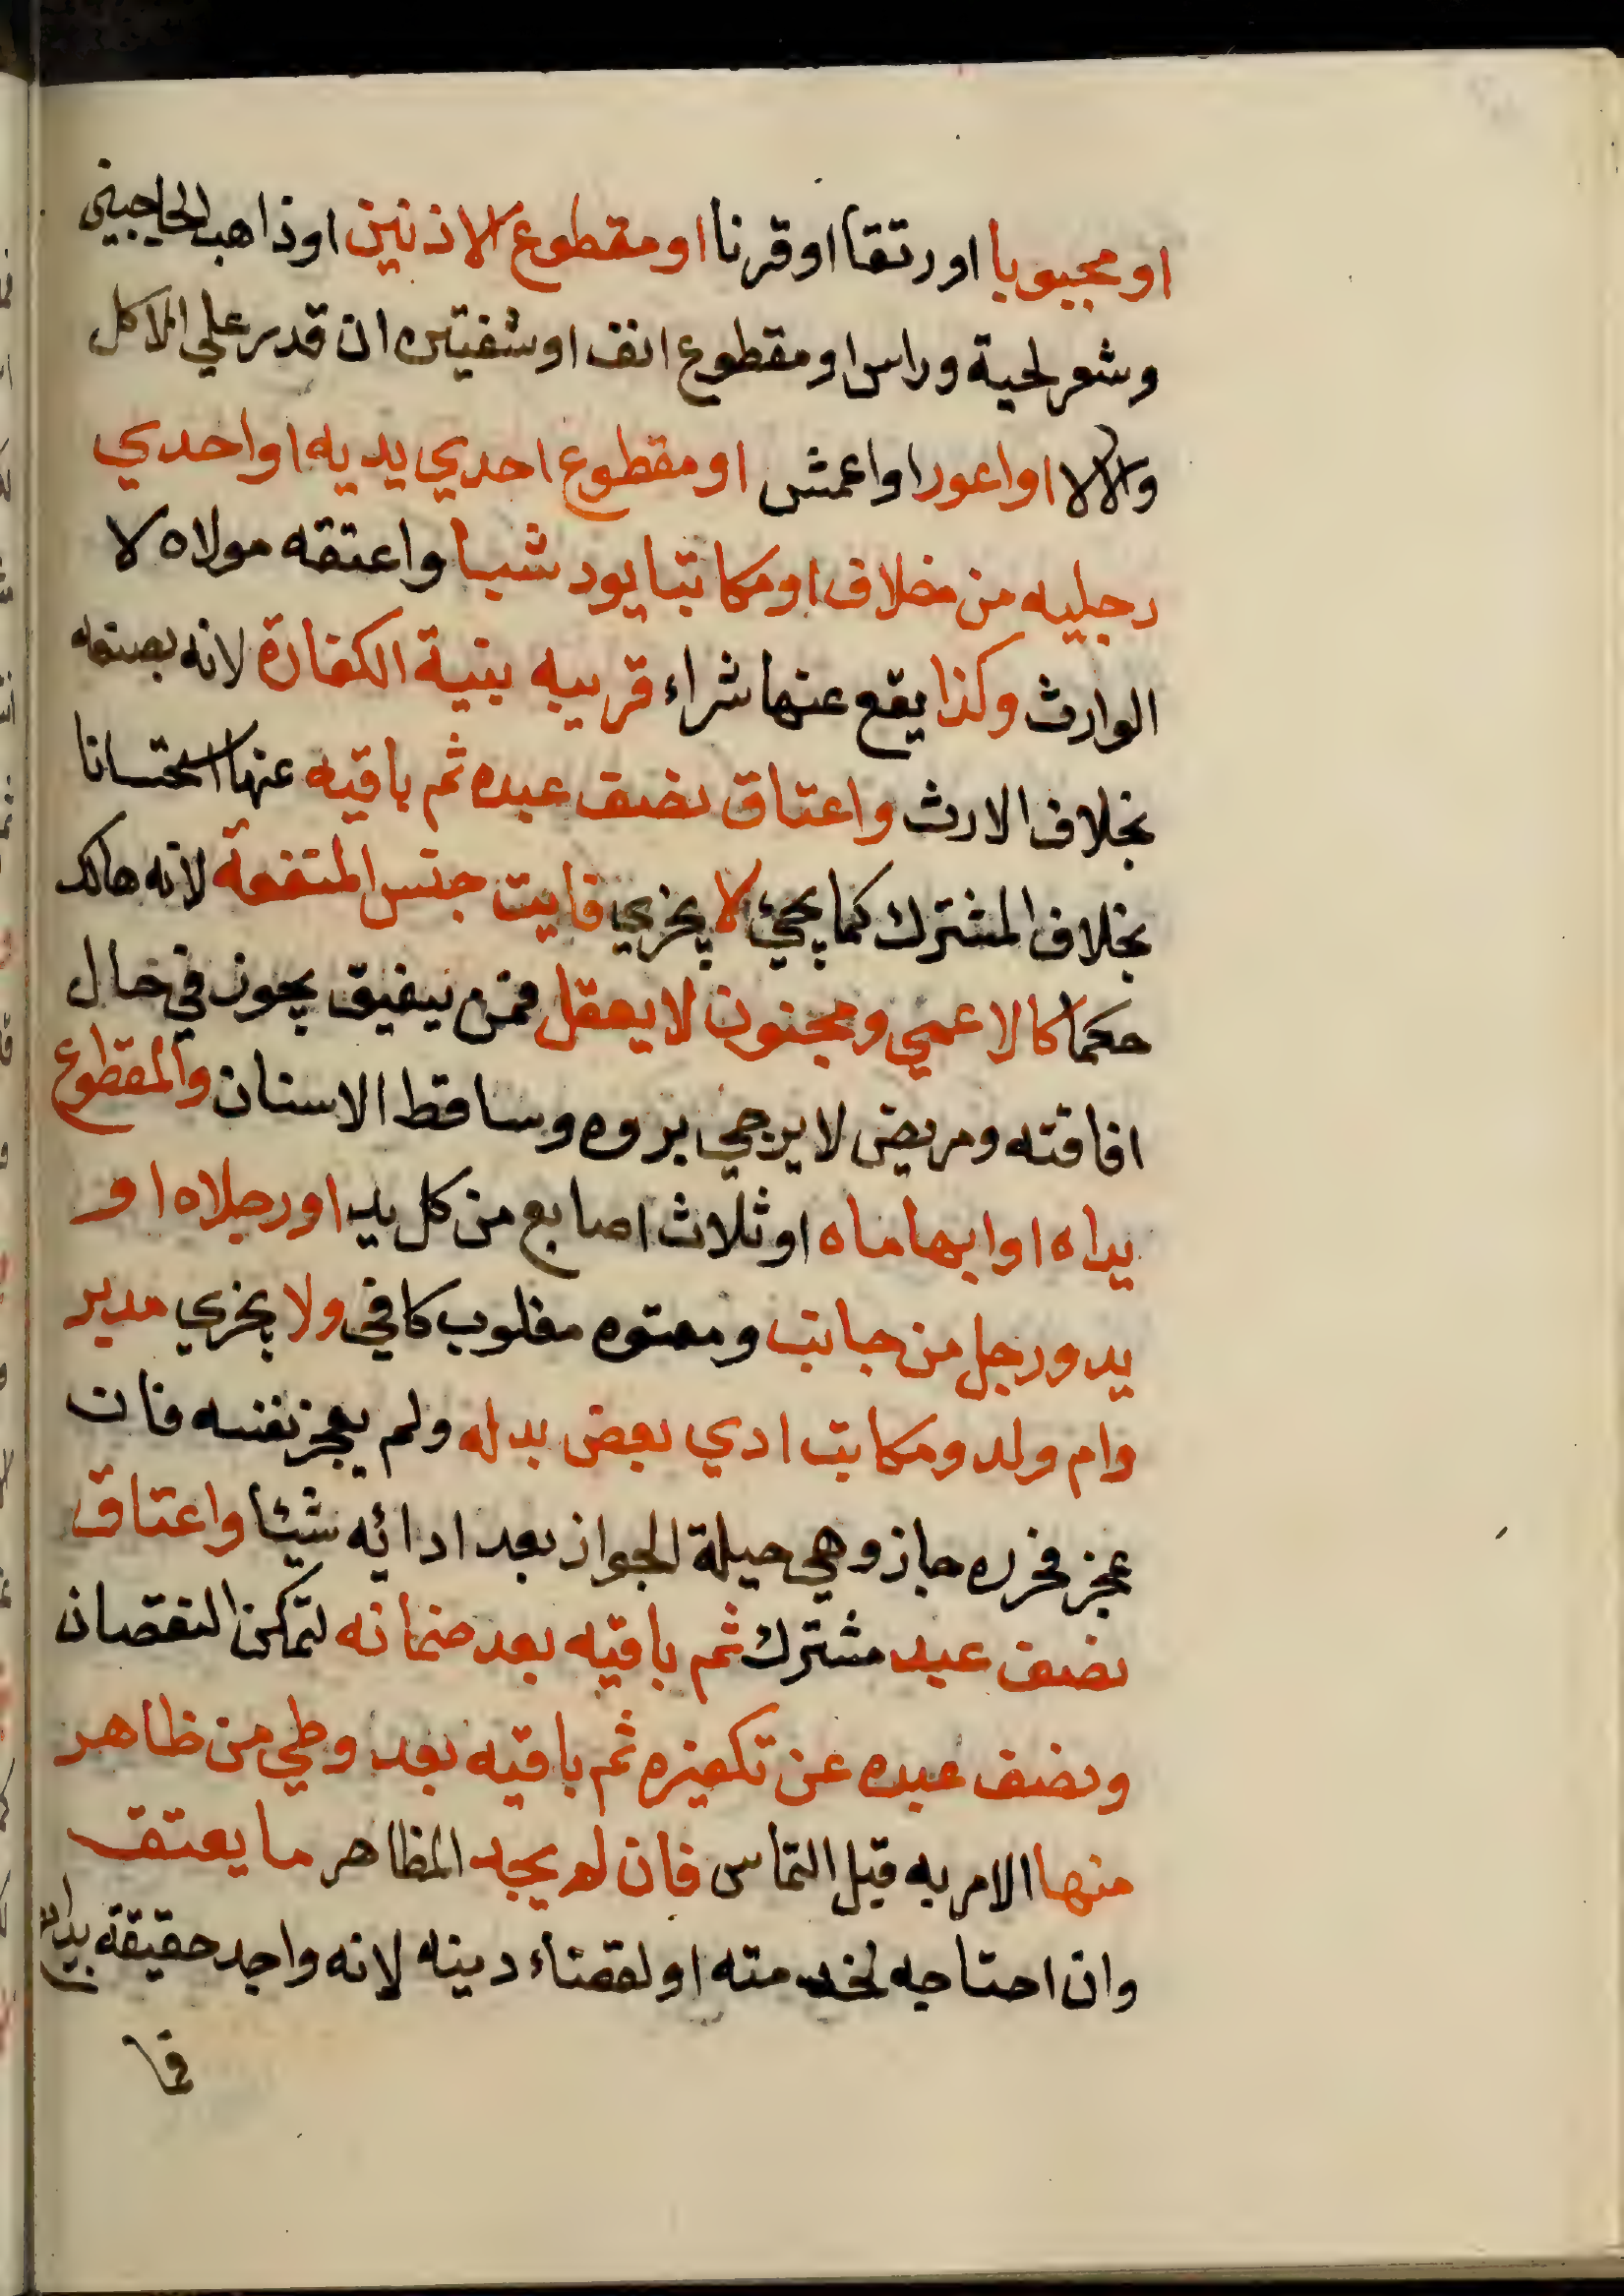 او مجبوبا او رتقا او قرنا او مقطوع الاذنين او ذاهب الحاجبين
وشعر لحية وراس او مقطوع انف او شفتين ان قدر علي الاكل
والا لا او اعور او اعمش او مقطوع احدي يديه او احدي
رجليه من خلاف او مكاتبا يود شيا واعتقه مولاه لا
الوارث وكذا يقع عنها شراء قريبه بنية الكفارة لانه بصنعه
بخلاف الارث واعتاق نصف عبده ثم باقيه عنها استحسانا
بخلاف المشترك كما يجئ لا يجزي فايت جنس المنفعة لانه هالك
حكما كالاعمي ومجنون لا يعقل فمن يفيق يجوز في حال
افاقته ومريض لا يرجي بروه وساقط الاسنان والمقطوع
يداه او ابهاماه او ثلاث اصابع من كل يد او رجلاه او
يد ورجل من جانب ومعتوه مغلوب كافي ولا يجزي مدبر
وام ولد ومكاتب ادي بعض بدله ولم يعجز نفسه فان
عجز فحرره جاز وهي حيلة الجواز بعد ادائه شيئا واعتاق
نصف عبد مشترك ثم باقيه بعد ضمانه لتمكن النقصان
ونصف عبده عن تكفيره ثم باقيه بعد وطي من ظاهر
منها الامر به قبل التماس فان لم يجد المظاهر ما يعتق
وان احتاجه لخدمته او لقضاء دينه لانه واجد حقيقة بدائع
فما